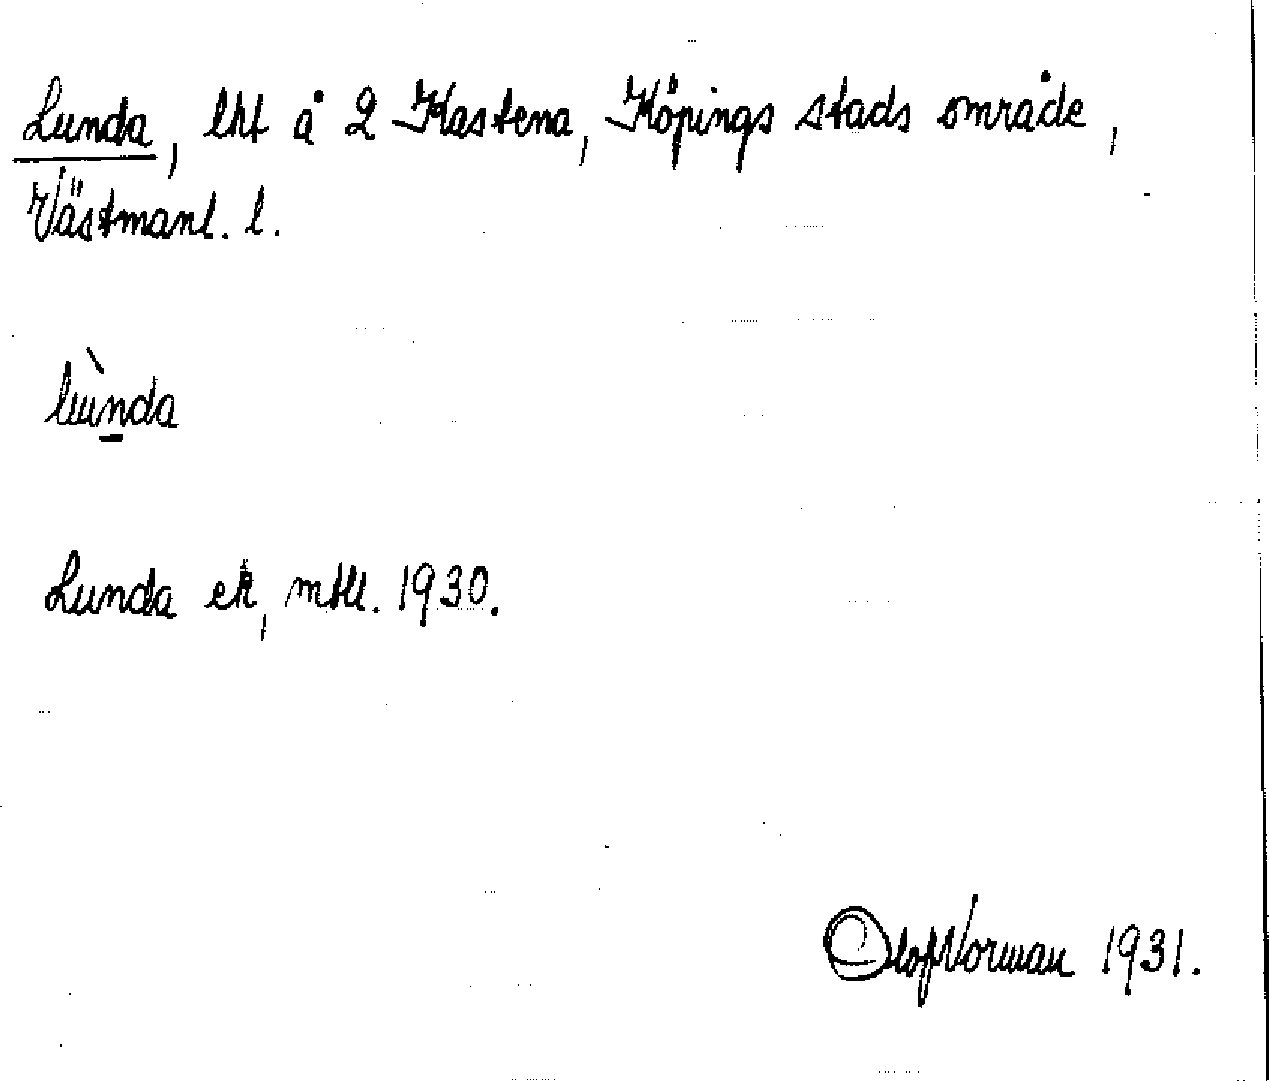 Lunda, lht å 2 Kastena, Köpings stads område,
Västmanl. l.
lùnda
Lunda ek, mtll. 1930.
Olof Norman 1931.